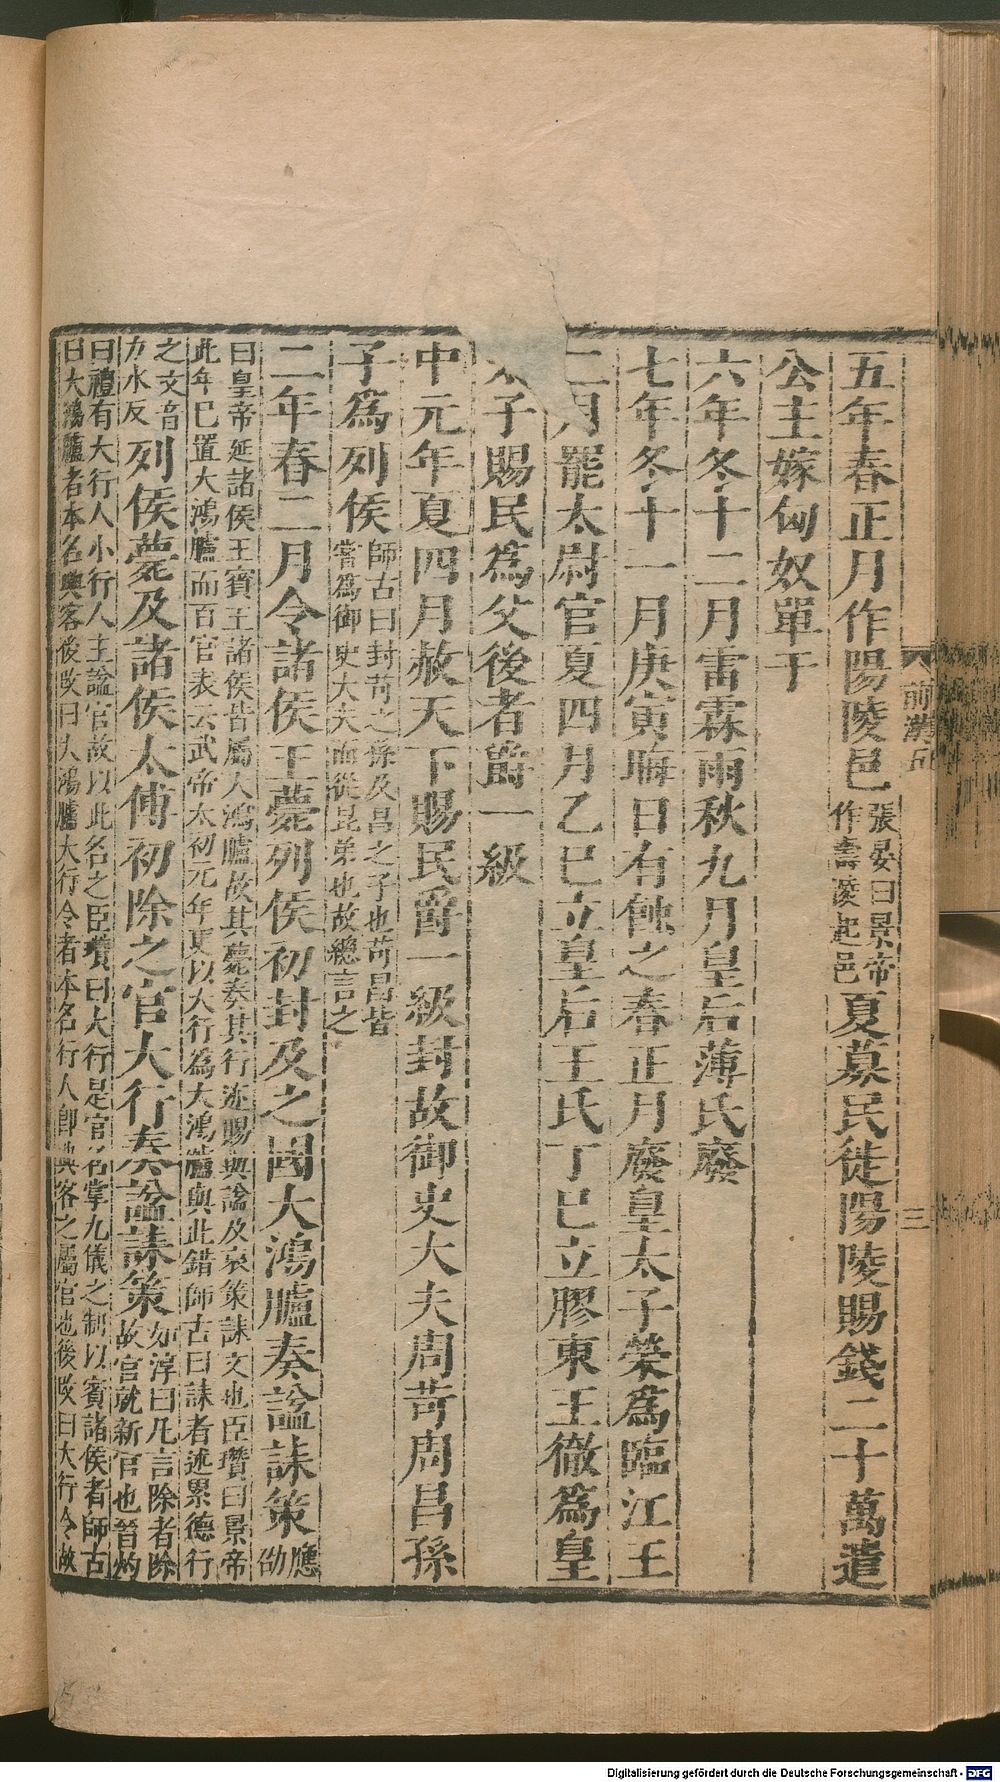 五年春正月作陽陵邑張晏曰景帝作壽陵起邑夏募民徙陽陵賜錢二十萬遣
公主嫁匈奴單于
六年冬十二月雷霖雨秋九月皇后薄氏廢
七年冬十一月庚寅晦日有蝕之春正月廢皇太子榮爲臨江王
二月罷太尉官夏四月乙巳立皇后王氏丁巳立膠東王徹爲皇
太子賜民爲父後者爵一級
中元年夏四月赦天下賜民爵一級封故御史大夫周苛周昌孫
子爲列侯師古曰封苛之孫及昌之子也苛昌皆嘗爲御史大夫而從昆弟也故總言之
二年春二月令諸侯王薨列侯初封及之國大鴻臚奏諡誄策應劭
曰皇帝延諸侯王賓王諸侯皆屬大鴻臚故其薨奏其行迹賜與諡及哀策誄文也臣瓚曰景帝
此年已置大鴻臚而百官表云武帝太初元年更以大行爲大鴻臚與此錯師古曰誄者述累德行
之文音力水反列侯薨及諸侯太傅初除之官大行奏諡誄策如淳曰凡言除者除故官就新官也晉灼
曰禮有大行人小行人主諡官故以此名之臣瓚曰大行是官名掌九儀之制以賓諸侯者師古
曰大鴻臚者本名典客後改曰大鴻臚大行令者本名行人卽典客之屬官也後改曰大行令故
前漢五
三
Digitalisierung gefördert durch die Deutsche Forschungsgemeinschaft - DFG